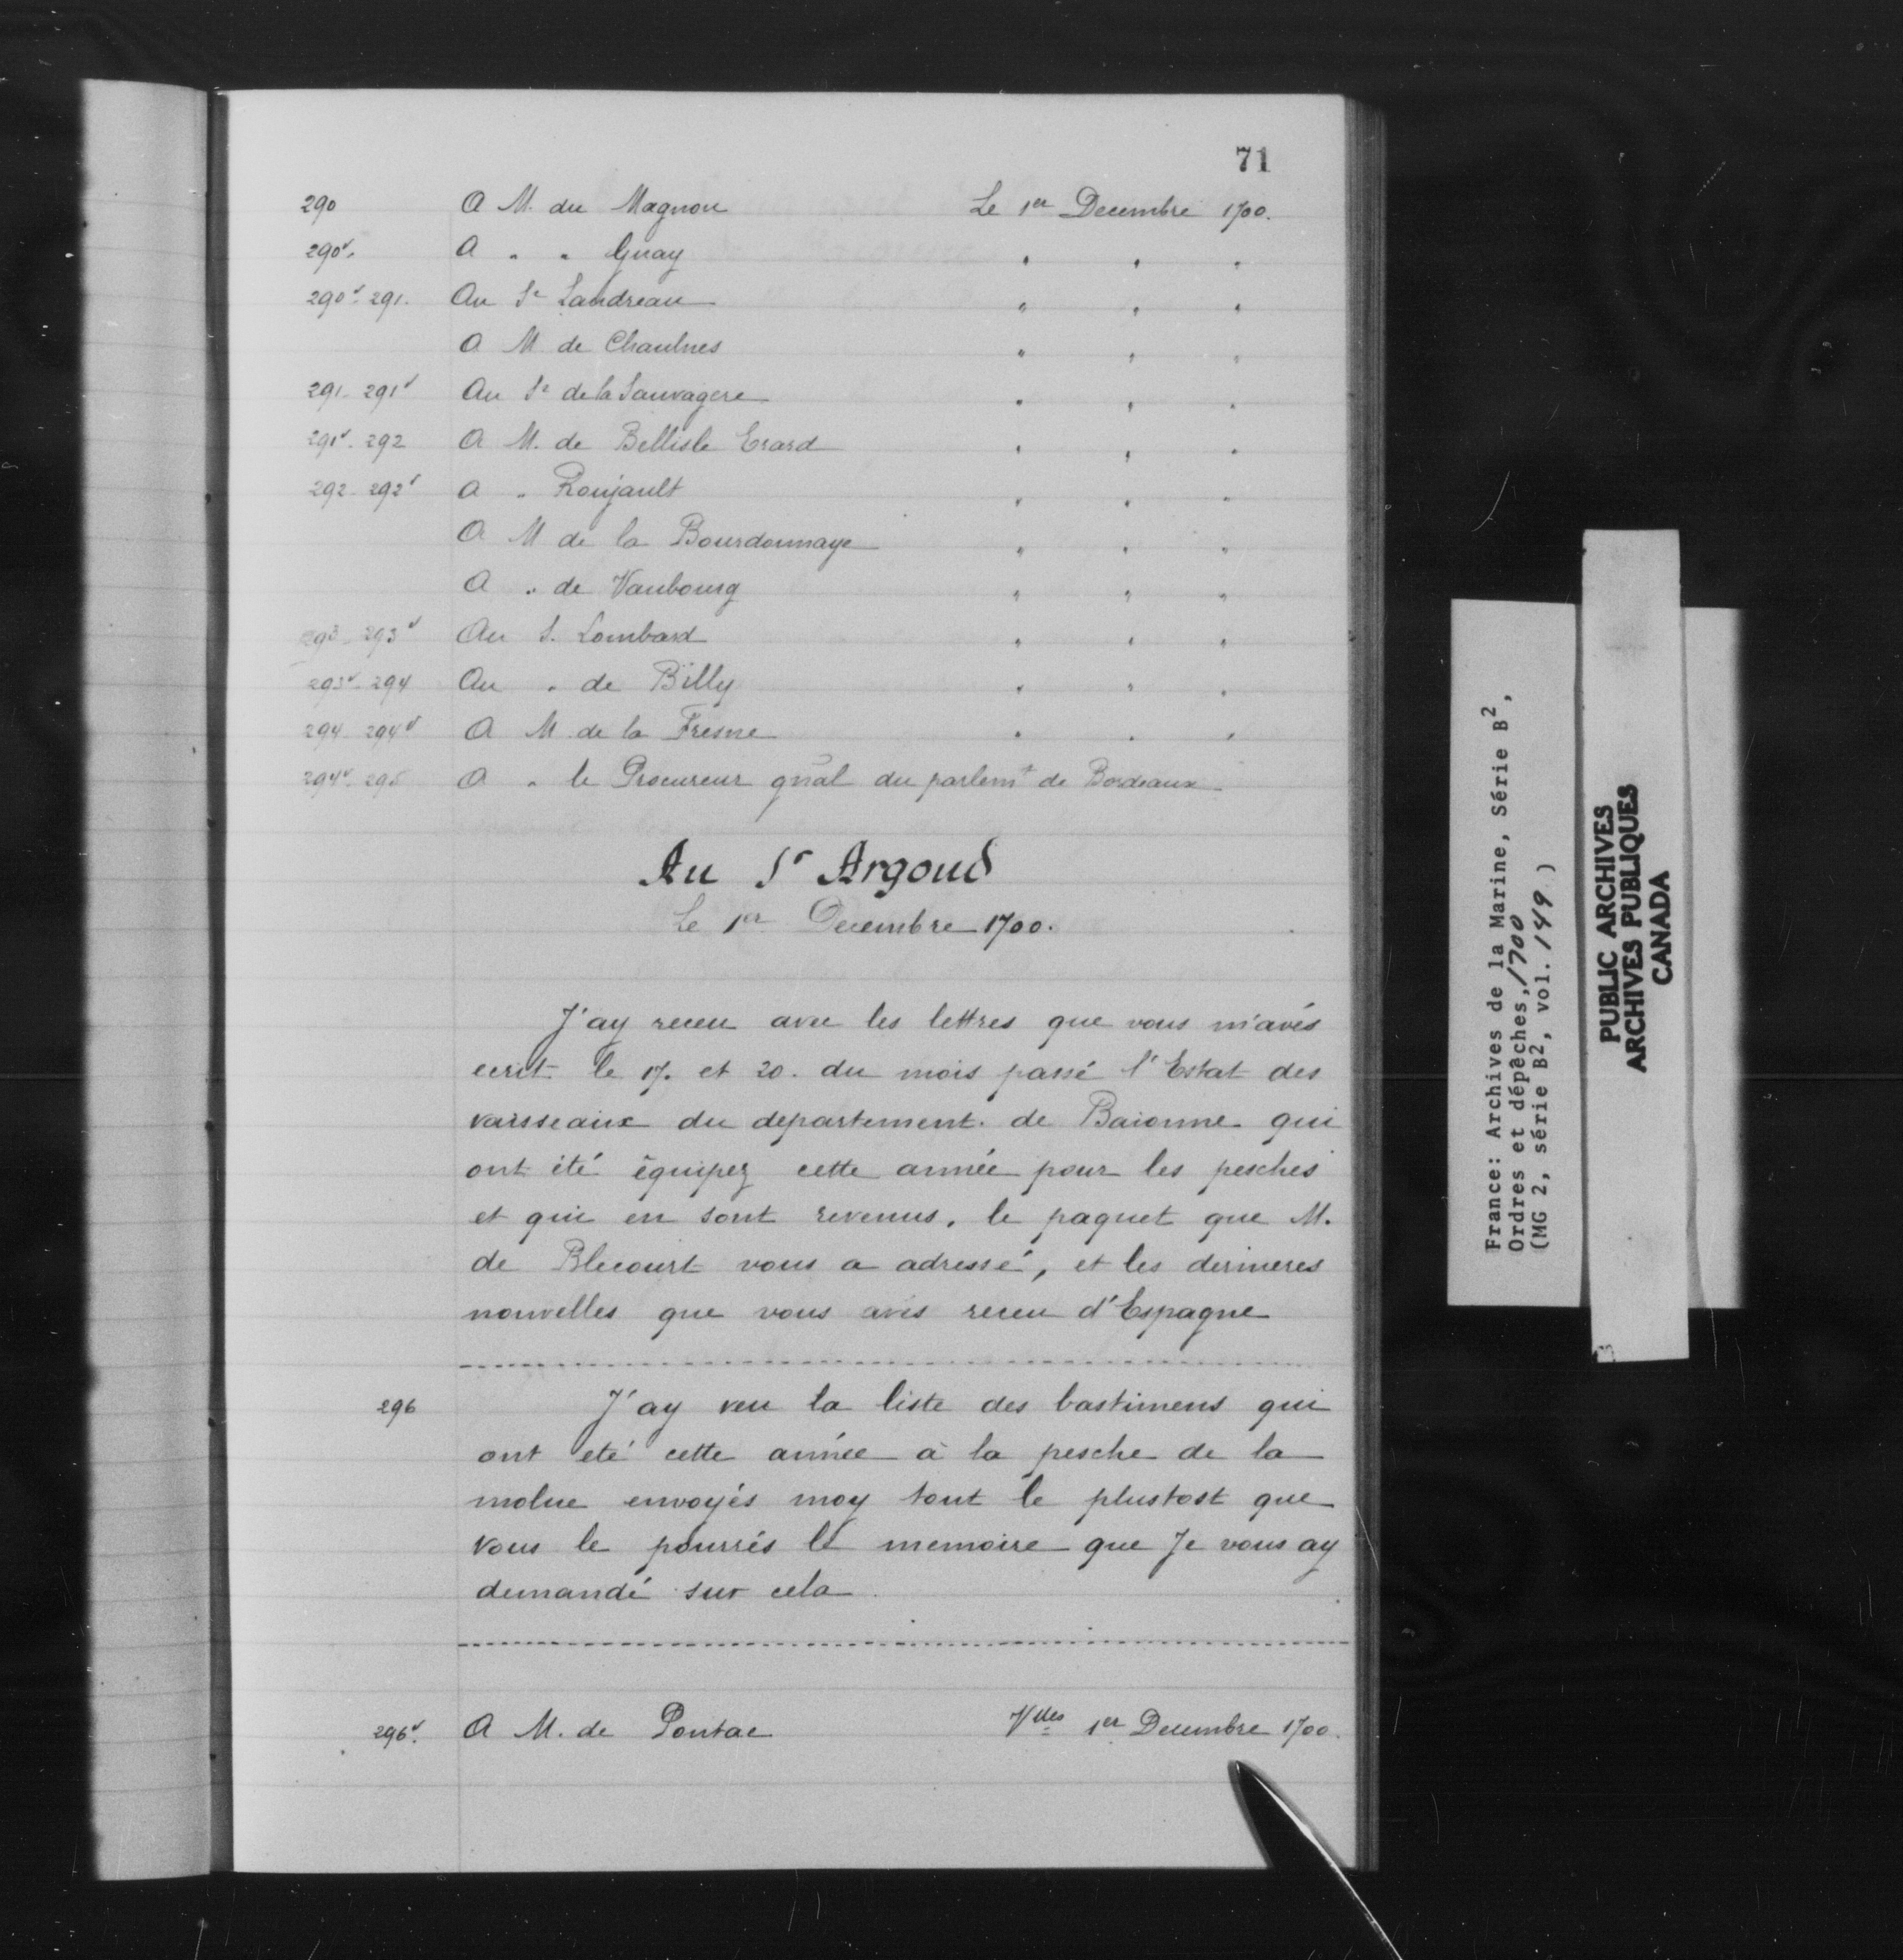 71
290 A M. du Magnou Le 1er Decembre 1700.
290v. A " " Guay " " "
290v. 291. Au Sr Landreau " " "
A M de Chaulnes " " "
291 - 291v Au Sr de la Sauvagere " " "
291v. 292 A M. de Bellisle Erard " " "
292 - 292v A " Roujault " " "
A M de la Bourdonnaye " " "
A " de Vaubourg " " "
293 - 293v Au S. Lombard " " "
293v. 294 Au " de Billy " " "
294 - 294v A M de la Fresne " " "
294v. 295 A " le Procureur gñal du parlemt de Bordeaux
Au Sr Argoud
Le 1er Decembre 1700.
J'ay receu avec les lettres que vous m'avés
ecrit le 17. et 20. du mois passé l'Estat des
vaisseaux du departement de Baionne qui
ont été équipez cette année pour les pesches
et qui en sont revenus, le paquet que M.
de Blecourt vous a adressé, et les dernieres
nouvelles que vous avés receu d'Espagne
296 J'ay veu la liste des bastimens qui
ont eté cette année à la pesche de la
molue envoyés moy tout le plustost que
vous le pourrés le memoire que Je vous ay
demandé sur cela
296v. A M. de Pontac Vlles 1er Decembre 1700.
France: Archives de la Marine, Série B2,
Ordres et dépêches, 1700
(MG 2, série B2, vol. 149 )
PUBLIC ARCHIVES
ARCHIVES PUBLIQUES
CANADA